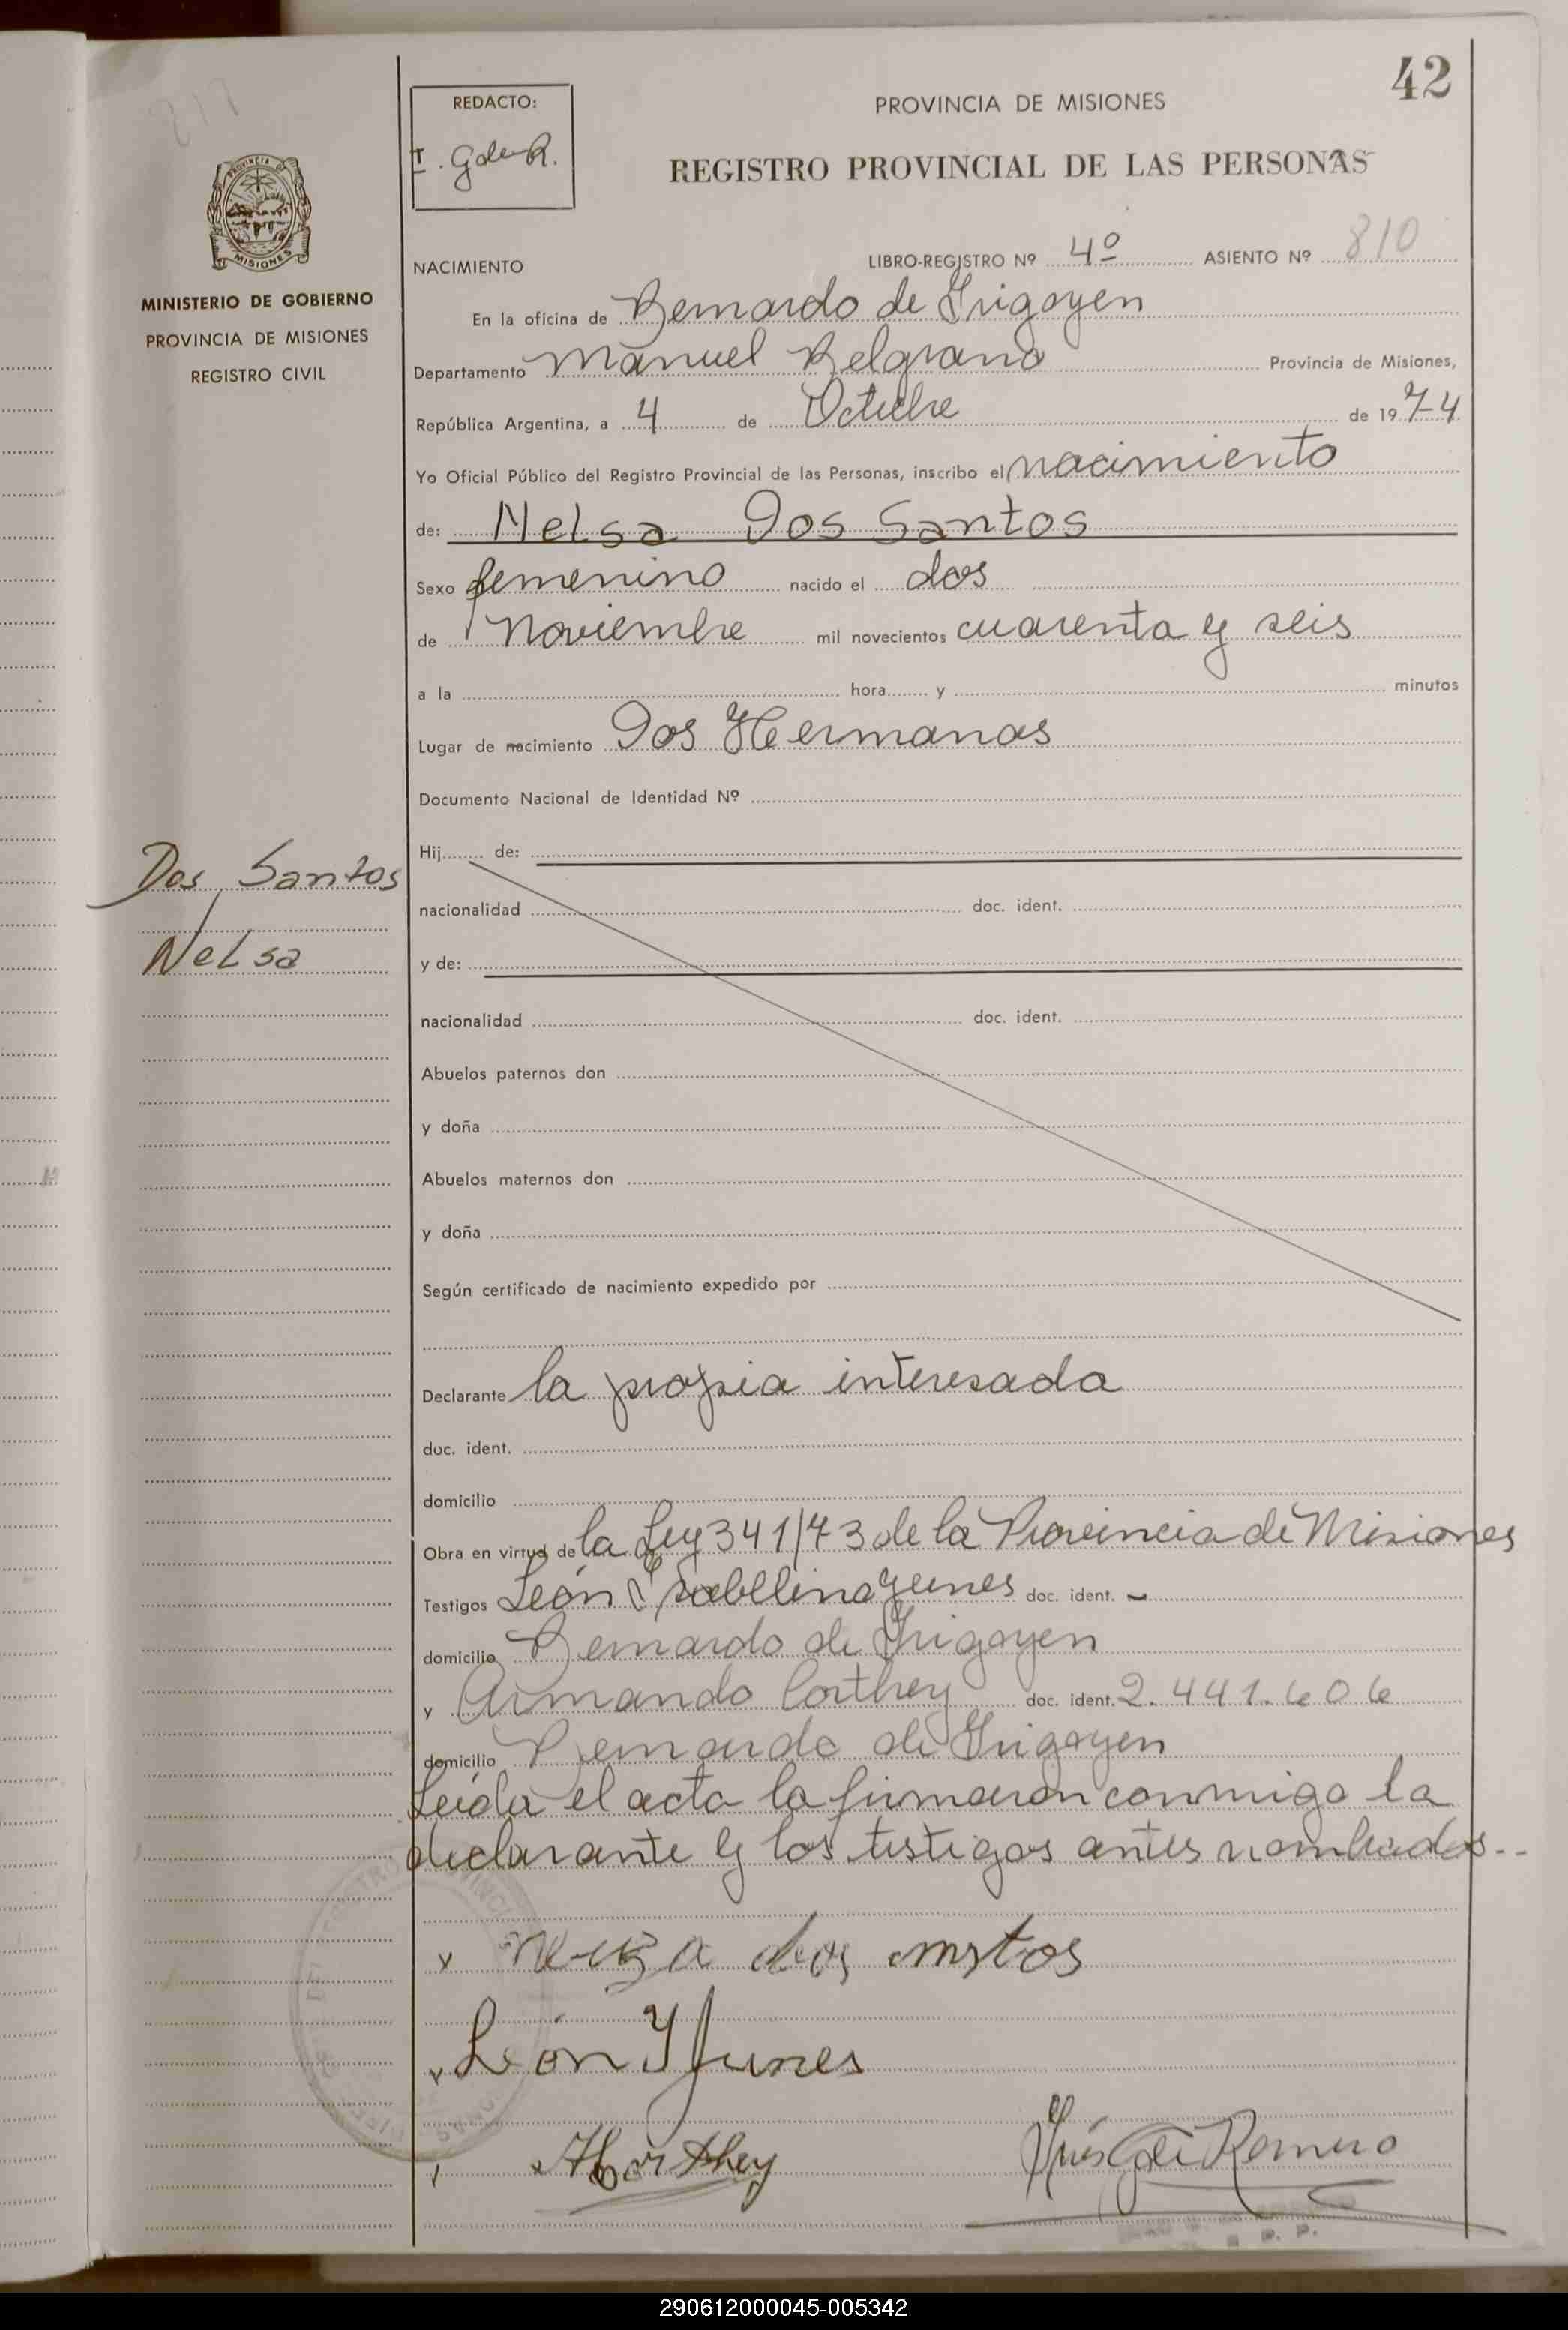 42
REDACTO:
I. G de R.
PROVINCIA DE MISIONES
REGISTRO PROVINCIAL DE LAS PERSONAS
PROVINCIA DE
MISIONES
MINISTERIO DE GOBIERNO
PROVINCIA DE MISIONES
REGISTRO CIVIL
NACIMIENTO LIBRO-REGISTRO Nº 4º ASIENTO Nº 810
En la oficina de Bernardo de Irigoyen
Departamento Manuel Belgrano Provincia de Misiones,
República Argentina, a 4 de Octubre de 1974
Yo Oficial Público del Registro Provincial de las Personas, inscribo el nacimiento
de: Nelsa Dos Santos
Sexo femenino nacido el dos
de Noviembre mil novecientos cuarenta y seis
a la hora y minutos
Lugar de nacimiento Dos Hermanas
Documento Nacional de Identidad Nº
Hij de:
Dos Santos
nacionalidad doc. ident.
Nelsa
y de:
nacionalidad doc. ident.
Abuelos paternos don
y doña
Abuelos maternos don
y doña
Según certificado de nacimiento expedido por
Declarante la propia interesada
doc. ident.
domicilio
Obra en virtud de la Ley 341/73 de la Provincia de Misiones
Testigos León Yunes doc. ident. -
domicilio Bernardo de Irigoyen
y Armando Corthey doc. ident. 2.441.606
domicilio Bernardo de Irigoyen
Leída el acta la firmaron conmigo la
declarante y los testigos antes nombrados..
x neuza dos
León Yunes
ACorthey
Inés G de Romero
290612000045-005342